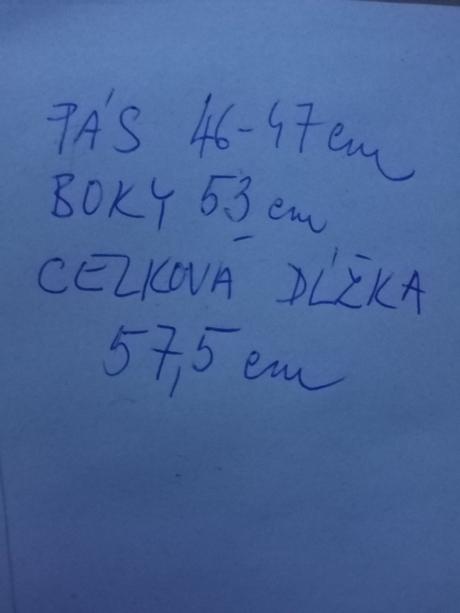 PÁS 46-47 cm
BOKY 53 cm
CELKOVÁ DĹŽKA
57,5 cm